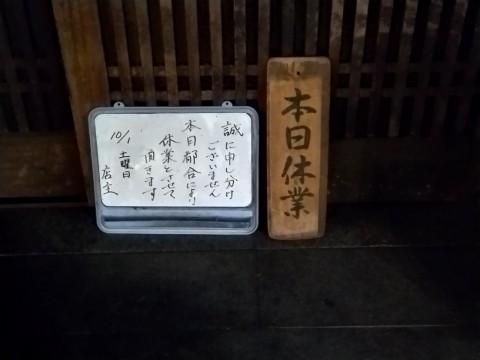 本日休業
誠に申し分け
ございません
本日都合により
休業とさせて
頂きます
10/1 土曜日
店主